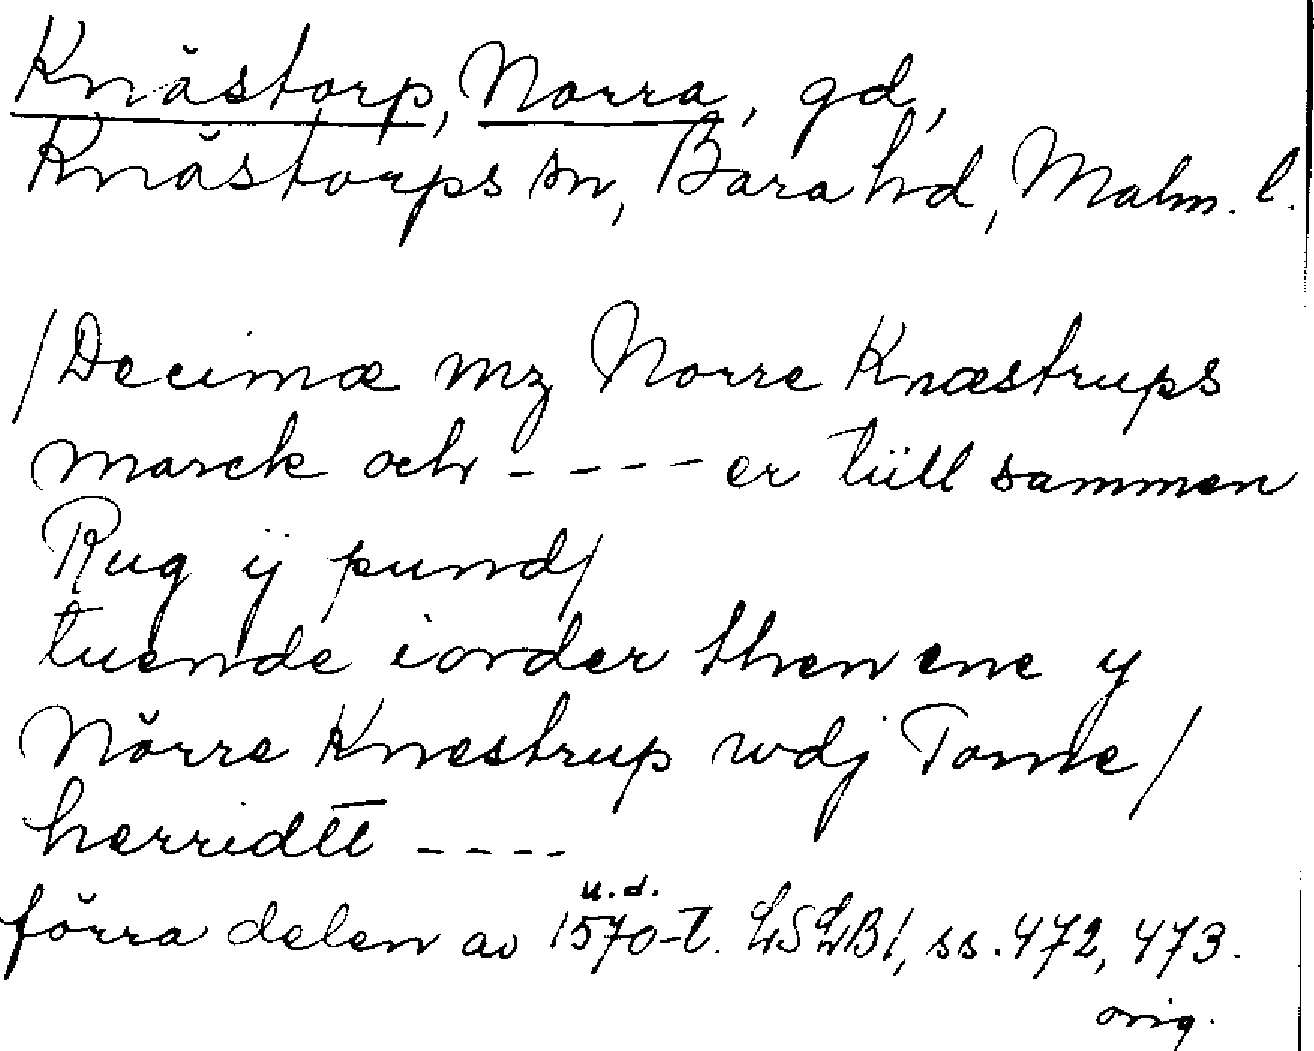 Knästorp, Norra, gd,
Knästorps sn, Bara hd, Malm. l.
/Decimæ mz Norre Knæstrups
marck och - - - - er tüll sammen
Rug ij pund/
tuende iorder then ene y
Nörre Knestrup wdj Torne/
herridtt - - - -
förra delen av 1570-t. u.d. LSLB1, ss. 472, 473.
orig.